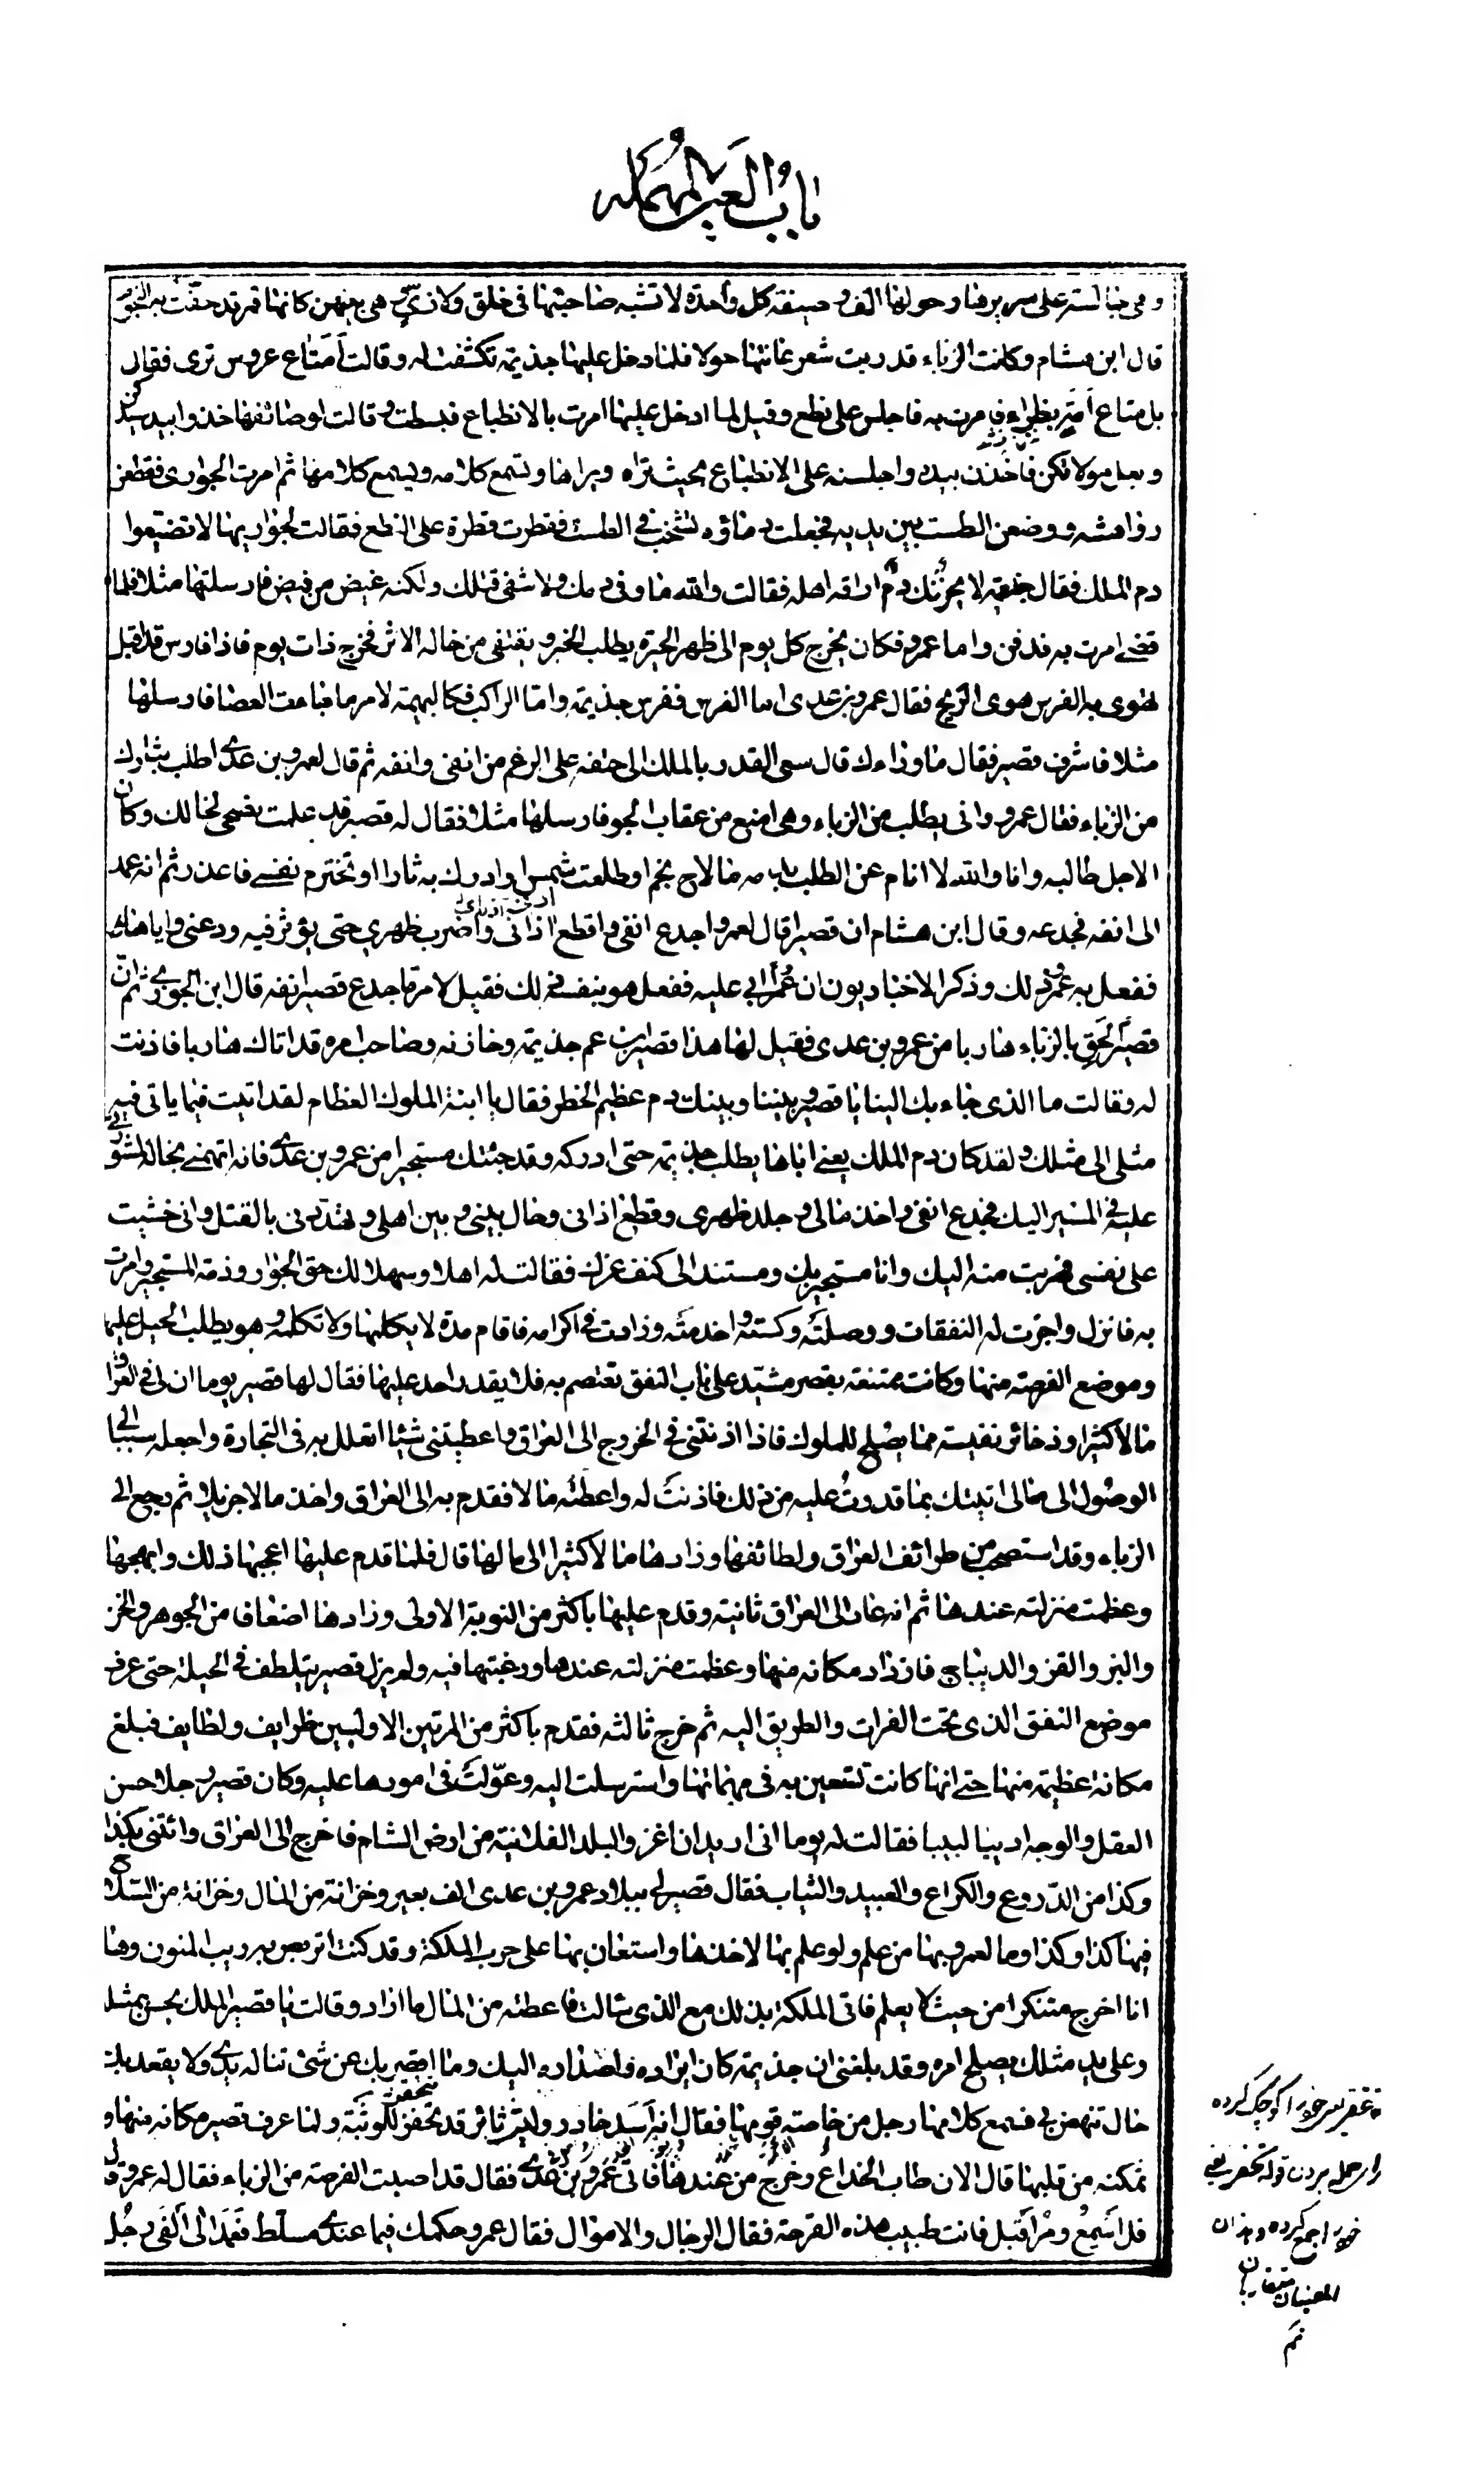 باب العين المهملة
وهى جالسة على سريرها وحولها الف وصيفة كل واحدة لا تشبه صاحبتها فى خلق ولا زى وهى بينهن كانها قمر قد حفت به النجوم
قال ابن هشام وكانت الزباء قد ربت شعر عانتها حولا فلما دخل عليها جذيمة تكشفت له وقالت أمتاع عروس ترى فقال
بل متاع أمة بظراء فامرت به فاجلس على نطع وقيل لما ادخل عليها امرت بالانطاع فبسطت وقالت لوصائفها خذوا بيد سيدكن
وبعل مولاتكن فاخذن بيده واجلسنه على الانطاع بحيث تراه ويراها وتسمع كلامه ويسمع كلامها ثم امرت الجوارى فقطعن
رواهشه ووضعن الطست بين يديه فجعلت دماؤه تشخب فى الطست فقطرت قطرة على النطع فقالت لجواريها لا تضيعوا
دم الملك فقال جذيمة لا يحزنك دم اراقه اهله فقالت والله ما وفى دمك ولا شفى قتلك ولكنه غيض من فيض فارسلتها مثلا فلما
قضى امرت به فدفن واما عمرو فكان يخرج كل يوم الى ظهر الحيرة يطلب الخبر ويقتفى من خاله الاثر فخرج ذات يوم فاذا فارس قد اقبل
تهوى به الفرس هوى الريح فقال عمرو بن عدى اما الفرس ففرس جذيمة واما الراكب فكالبهيمة لامر ما جاءت العصا فارسلها
مثلا فاشرف قصير فقال ما وراءك قال سعى القدر بالملك الى حتفه على الرغم من انفى وانفه ثم قال لعمرو بن عدى اطلب بثارك
من الزباء فقال عمرو وانى يطلب من الزباء وهى امنع من عقاب الجو فارسلها مثلا فقال له قصير قد علمت نصحى لخالك وكان
الاجل طالبه وانا والله لا انام عن الطلب بدمه ما لاح نجم او طلعت شمس او ادرك به ثارا او تخترم نفسى فاعذر ثم انه عمد
الى انفه فجدعه وقال ابن هشام ان قصيرا قال لعمرو اجدع انفى واقطع اذانى واضرب ظهرى حتى يؤثر فيه ودعنى واياها
ففعل به عمرو ذلك وذكر الاخباريون ان عمرا ابى عليه ففعل هو بنفسه ذلك فقيل لامر ما جدع قصير انفه قال ابن الجوزى ثم ان
قصيرا لحق بالزباء هاربا من عمرو بن عدى فقيل لها هذا قصير ابن عم جذيمة وخازنه وصاحب امره قد اتاك هاربا فاذنت
له وقالت ما الذى جاء بك الينا يا قصير وبيننا وبينك دم عظيم الخطر فقال يا ابنة الملوك العظام لقد اتيت فيما ياتى فيه
مثلى الى مثلك ولقد كان دم الملك يعنى اباها يطلب جذيمة حتى ادركه وقد جئتك مستجيرا من عمرو بن عدى فانه اتهمنى بخاله لمشورتى
عليه فى المسير اليك فجدع انفى واخذ مالى وجلد ظهرى وقطع اذانى وحال بينى وبين اهلى وتهددنى بالقتل وانى خشيت
على نفسى فهربت منه اليك وانا مستجير بك ومستند الى كنف عزك فقالت له اهلا وسهلا لك حق الجوار وذمة المستجير وامرت
به فانزل واجرت له النفقات ووصلته وكسته واخدمته وزادت فى اكرامه فاقام مدة لا يكلمها ولا تكلمه وهو يطلب الحيلة عليها
وموضع الفرصة منها وكانت ممتنعة بقصر مشيد على باب النفق تعتصم به فلا يقدر احد عليها فقال لها قصير يوما ان لى فى العراق
مالا كثيرا وذخائر نفيسة مما يصلح للملوك فاذا اذنتنى فى الخروج الى العراق واعطيتنى شيئا اتعلل به فى التجارة واجعله سببا الى
الوصول الى مالى اتيتك بما قدرت عليه من ذلك فاذنت له واعطته مالا فقدم به الى العراق واخذ مالا جزيلا ثم رجع الى
الزباء وقد استصحب من طرائف العراق ولطائفها وزادها مالا كثيرا الى مالها قال فلما قدم عليها اعجبها ذلك وابهجها
وعظمت منزلته عندها ثم انه عاد الى العراق ثانية وقدم عليها باكثر من النوبة الاولى وزادها اضعافا من الجوهر والخز
والبز والقز والديباج فازداد مكانه منها وعظمت منزلته عندها ورغبتها فيه ولم يزل قصير يتلطف فى الحيلة حتى عرف
موضع النفق الذى تحت الفرات والطريق اليه ثم خرج ثالثة فقدم باكثر من المرتين الاوليين ظرايف ولطايف فبلغ
مكانة عظيمة منها حتى انها كانت تستعين به فى مهماتها واسترسلت اليه وعولت فى امورها عليه وكان قصير رجلا حسن
العقل والوجه اديبا لبيبا فقالت له يوما انى اريد ان اغزو البلد الفلانية من ارض الشام فاخرج الى العراق وائتنى بكذا
وكذا من الدروع والكراع والعبيد والثياب فقال قصير لى ببلاد عمرو بن عدى الف بعير وخزانة من المال وخزانة من السلاح
فيها كذا وكذا وما لعمرو بها من علم ولو علم بها لاخذها واستعان بها على حرب الملكة وقد كنت اتربص به ريب المنون وها
انا اخرج متنكرا من حيث لا يعلم فاتى الملكة بذلك مع الذى سالت فاعطته من المال ما اراد وقالت يا قصير الملك يحسن بمثلك
وعلى يد مثلك يصلح امره وقد بلغنى ان جذيمة كان ايراده واصداره اليك وما تقصر يدك عن شئ تناله يدى ولا يقعد بك
حال تنهض بى فسمع كلامها رجل من خاصة قومها فقال انه اسد خادر وليث ثائر قد تحفز للوثبة ولما عرف قصير مكانه منها و
تمكنه من قلبها قال الان طاب الخداع وخرج من عندها فاتى عمرو بن عدى فقال قد اصبت الفرصة من الزباء فقال له عمرو
قل اسمع ومر اقبل فانت طبيب هذه القرحة فقال الرجال والاموال فقال عمرو حكمك فيما عندى مسلط فعمد الى الفى رجل
خود را جمع كرده